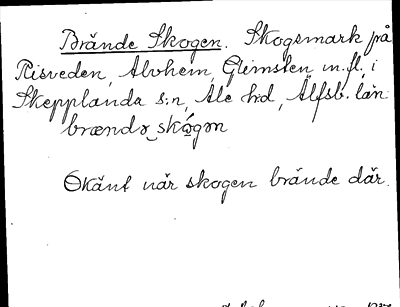 Brände Skogen. Skogsmark på
Risveden, Alvhem, Grimslen m.fl. i
Skepplanda s:n, Ale h:d, Älfsb. län.
brændə skógən
Okänt när skogen brände där.